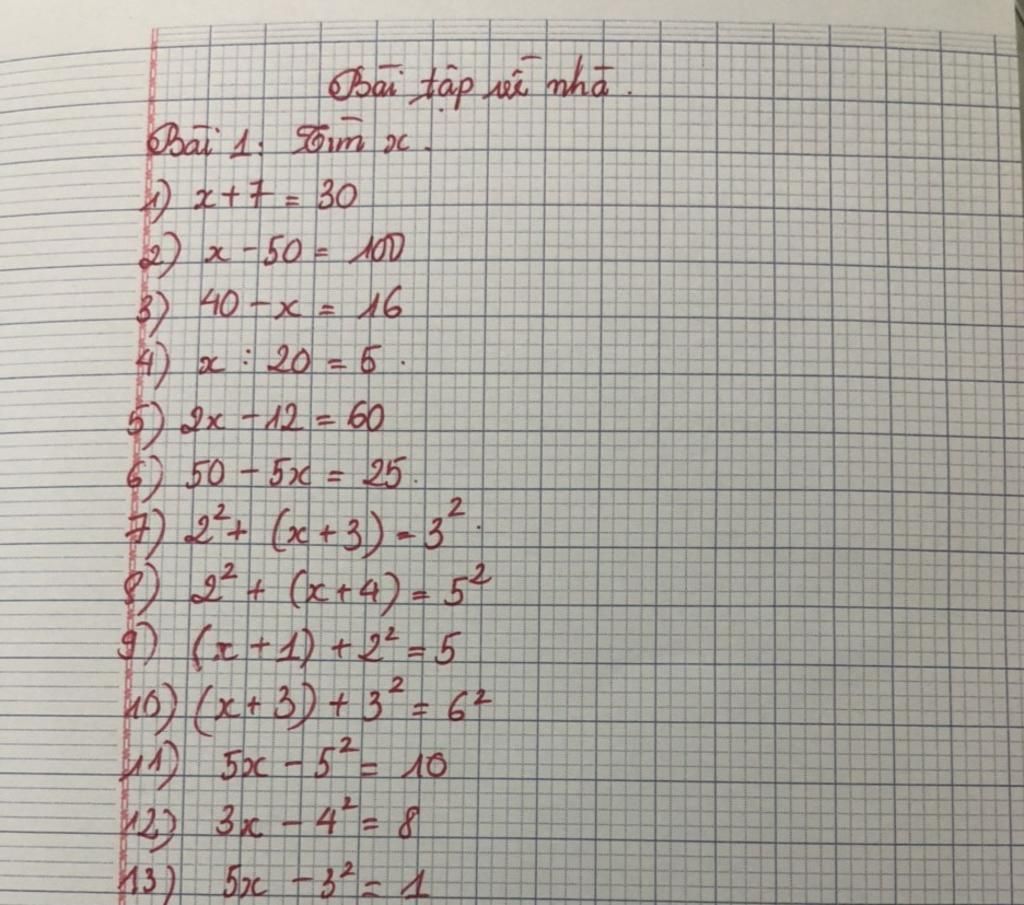 Bài tập về nhà.
Bài 1: Tìm x.
1) x + 7 = 30
2) x - 50 = 100
3) 40 - x = 16
4) x : 20 = 5.
5) 2x - 12 = 60
6) 50 - 5x = 25.
7) 2² + (x + 3) = 3².
8) 2² + (x + 4) = 5²
9) (x + 1) + 2² = 5
10) (x + 3) + 3² = 6²
11) 5x - 5² = 10
12) 3x - 4² = 8
13) 5x - 3² = 1